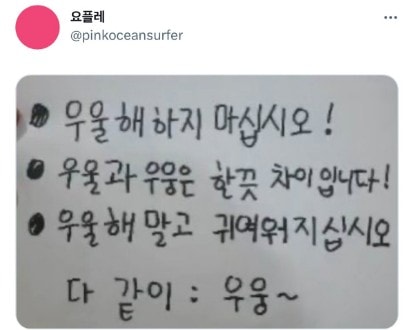 요플레
@pinkoceansurfer
● 우울해하지 마십시오!
● 우울과 우웅은 한끗 차이입니다!
● 우울해 말고 귀여워지십시오
다 같이 : 우웅~